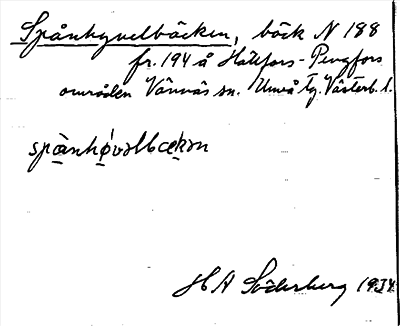 Spånhyvelbäcken, bäck N 188
fr. 194 å Hällfors-Pengfors
områden Vännäs sn. Umeå tg. Västerb. l.
spånhøvəlbækən
H A Söderberg 1934